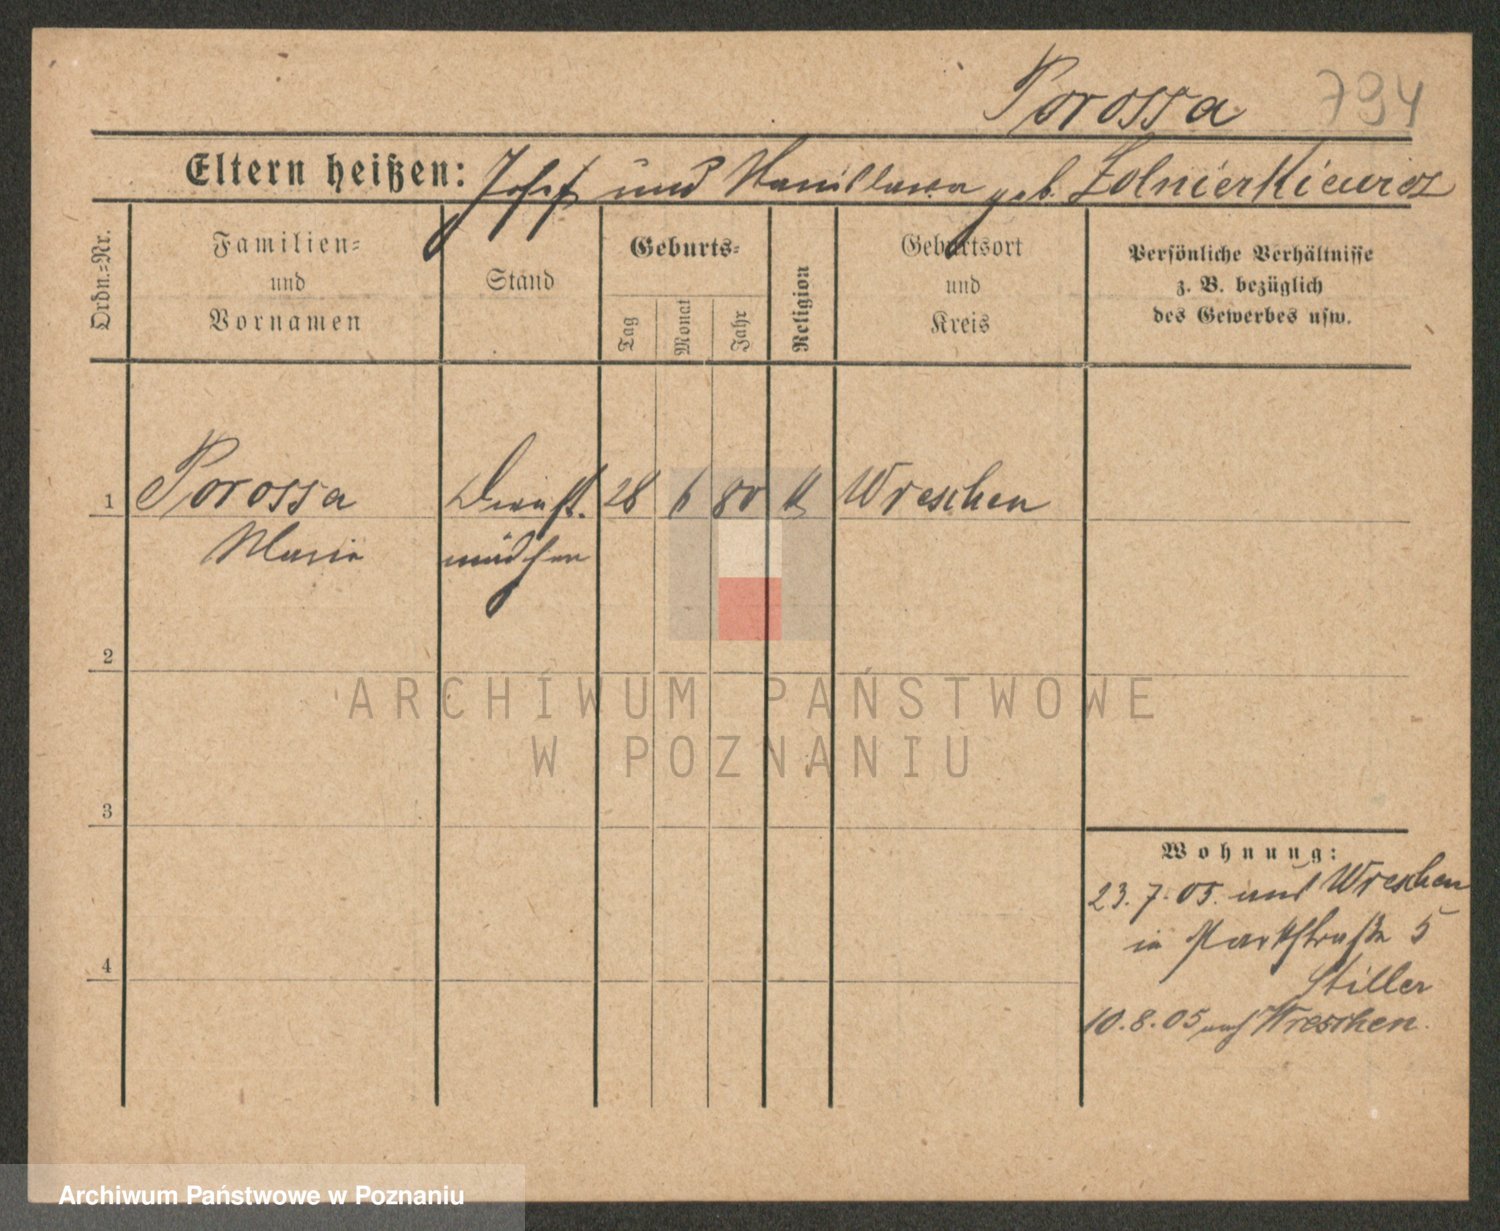 Porossa 794
Eltern heißen: Josef und Stanislawa geb. Zolnierkiewicz
Ordn.=Nr.
Familien=
und
Vornamen
Stand
Geburts=
Tag
Monat
Jahr
Religion
Geburtsort
und
Kreis
Persönliche Verhältnisse
z. B. bezüglich
des Gewerbes usw.
1 Porossa Dienst. 28 6 80 k Wreschen
Marie mädchen
2
3
4
Wohnung:
23. 7. 05. aus Wreschen
in Parkstraße 5
Stiller
10. 8. 05 nach Wreschen.
ARCHIWUM PAŃSTWOWE
W POZNANIU
Archiwum Państwowe w Poznaniu